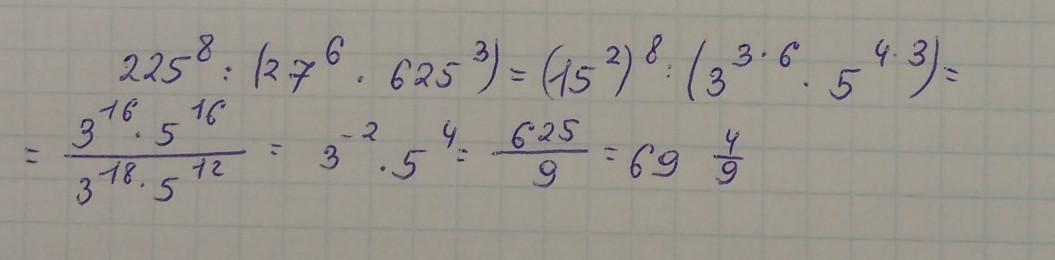 225⁸ : (27⁶ · 625³) = (15²)⁸ : (3³·⁶ · 5⁴·³) =
= 3¹⁶ · 5¹⁶ / 3¹⁸ · 5¹² = 3⁻² · 5⁴ = 625/9 = 69 4/9